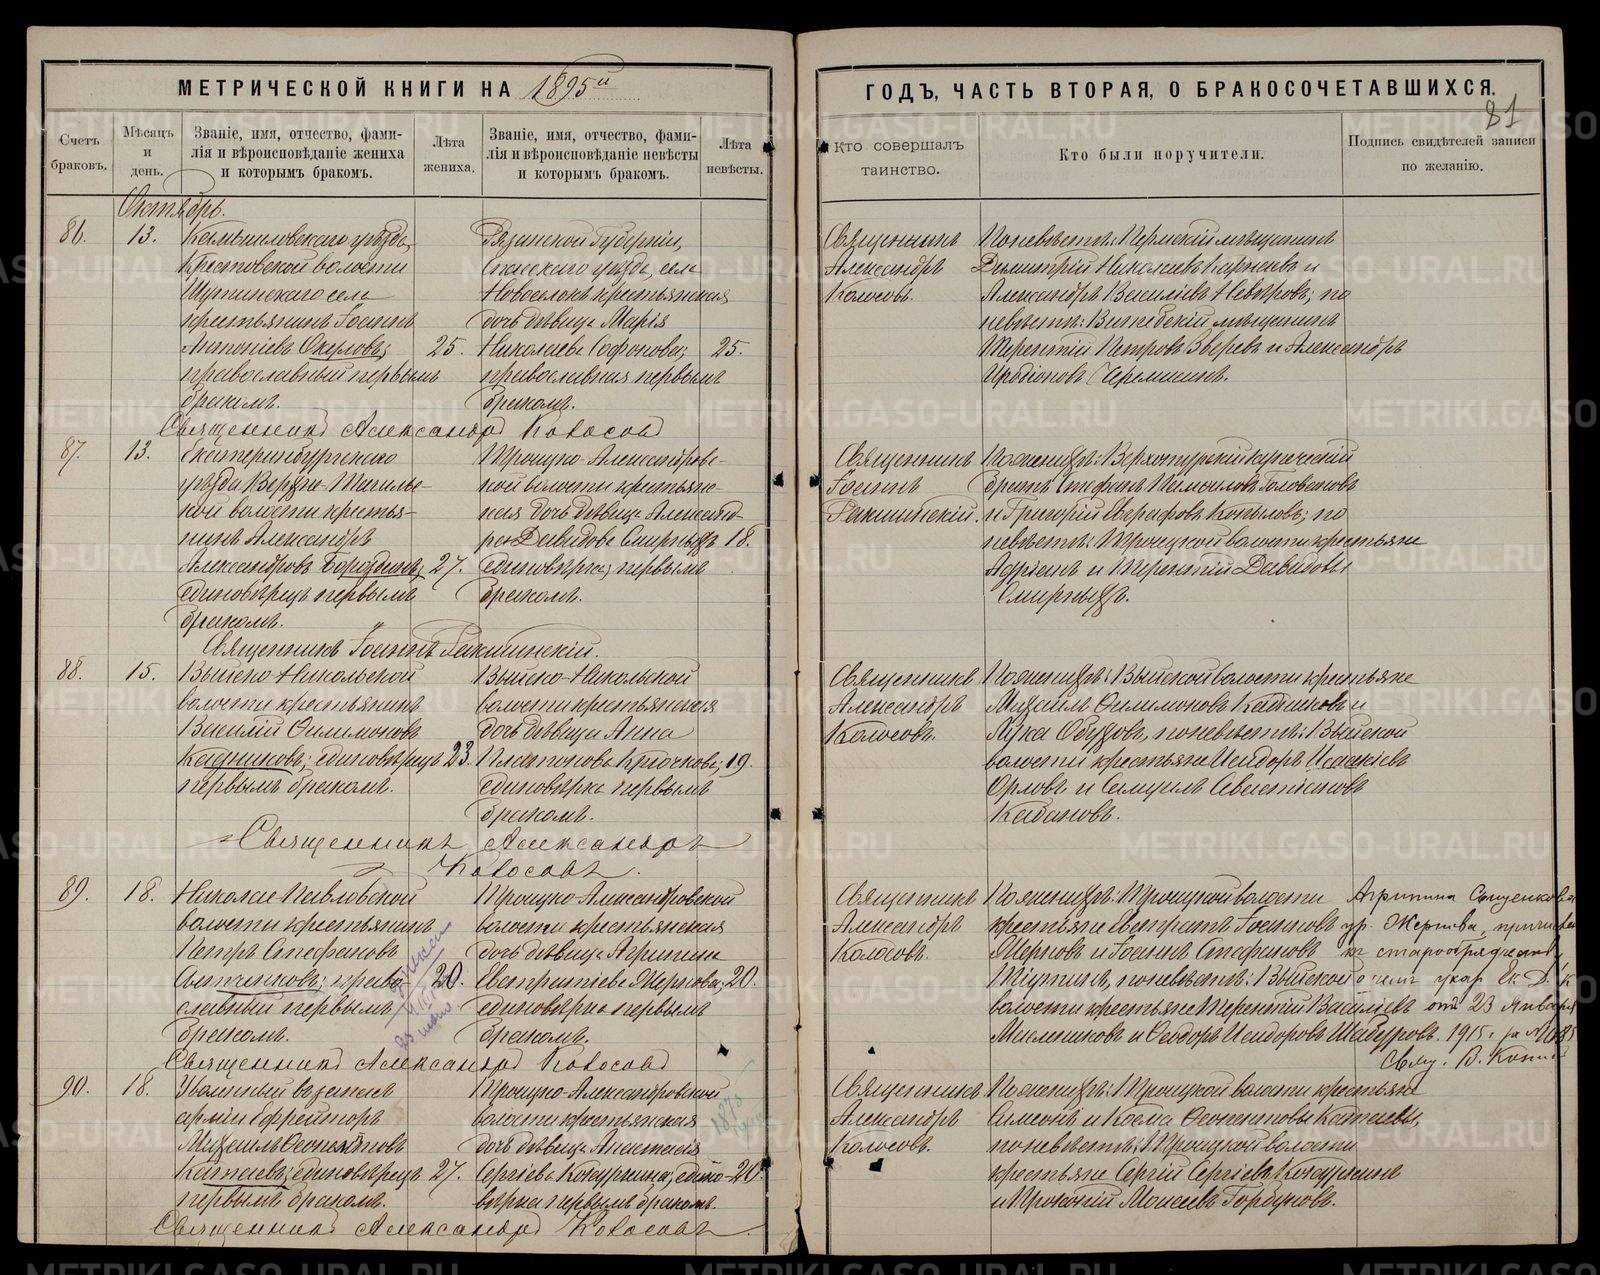 МЕТРИЧЕСКОЙ КНИГИ НА 1895й
ГОДЪ, ЧАСТЬ ВТОРАЯ, О БРАКОСОЧЕТАВШИХСЯ.
81
Счетъ браковъ.
Мѣсяцъ и день.
Званіе, имя, отчество, фами-
лія и вѣроисповѣданіе жениха
и которымъ бракомъ.
Лѣта жениха.
Званіе, имя, отчество, фами-
лія и вѣроисповѣданіе невѣсты
и которымъ бракомъ.
Лѣта невѣсты.
Кто совершалъ
таинство.
Кто были поручители.
Подпись свидѣтелей записи
по желанію.
Октябрь.
86.
13.
Камышловскаго уѣзда,
Крестовской волости
села
крестьянинъ Іоаннъ
Антоніевъ Окуловъ;
православный первымъ
бракомъ.
25.
Рязанской Губерніи,
Спасскаго уѣзда, села
Новоселокъ крестьянская
дочь дѣвица Марія
Николаева Софонова;
православная первымъ
бракомъ.
25.
Священникъ
Александръ
Колосовъ.
По невѣстѣ: Пермскій мѣщанинъ
Димитрій Николаевъ и
Александръ Василіевъ Невѣровъ; по
невѣстѣ: Витебскій мѣщанинъ
Терентій Петровъ Звѣревъ и Александръ
Иродіоновъ Черемисинъ.
Священникъ Александръ Колосовъ
87.
13.
Екатеринбургскаго
уѣзда Верхне-Тагиль-
ской волости крестья-
нинъ Александръ
Александровъ Бородинъ,
единовѣрецъ первымъ
бракомъ.
27.
Троицко-Александров-
ской волости крестьян-
ская дочь дѣвица Александ-
ра Давидова Смирныхъ
единовѣрка; первымъ
бракомъ.
18.
Священникъ
Іоаннъ
По женихѣ: Верхотурскій купеческій
братъ Стефанъ Самоиловъ Головановъ
и Григорій Копыловъ; по
невѣстѣ: Троицкой волости крестьяне
Адріанъ и Терентій Давидовы
Смирныхъ.
Священникъ Іоаннъ
88.
15.
Выйско-Никольской
волости крестьянинъ
Василій Филимоновъ
единовѣрецъ
первымъ бракомъ.
23.
Выйско-Никольской
волости крестьянская
дочь дѣвица Анна
Платонова Крючкова;
единовѣрка первымъ
бракомъ.
19.
Священникъ
Александръ
Колосовъ.
По женихѣ: Выйской волости крестьяне
Михаилъ Филимоновъ и
Лука Обуховъ, по невѣстѣ: Выйской
волости крестьяне Исидоръ Исаакіевъ
Орловъ и Самуилъ Севастіановъ
Кабановъ.
Священникъ Александръ
Колосовъ.
89.
18.
Николае-Павловской
волости крестьянинъ
Петръ Стефановъ
право-
славный первымъ
бракомъ.
20.
Троицко-Александровской
волости крестьянская
дочь дѣвица Агрипина
Евстратіева Жернова;
единовѣрка первымъ
бракомъ.
20.
Священникъ
Александръ
Колосовъ.
По женихѣ: Троицкой волости
крестьяне Евстратъ Іоанновъ
Жерновъ и Іоаннъ Стефановъ
по невѣстѣ: Выйской
волости крестьяне Терентій Василіевъ
Мельниковъ и Ѳеодоръ Исидоровъ Шабуровъ.
Агрипина
ур. Жернова,
къ старообрядчеству
о чемъ указ. Ек. Д. К.
отъ 23 Января
1915 г. за №
Свящ. В.
Священникъ Александръ Колосовъ
90.
18.
Уволенный въ запасъ
арміи Ефрейторъ
Михаилъ Ѳеопемптовъ
Катаевъ; единовѣрецъ
первымъ бракомъ.
27.
Троицко-Александровской
волости крестьянская
дочь дѣвица Анастасія
Сергіева едино-
вѣрка первымъ бракомъ.
20.
Священникъ
Александръ
Колосовъ.
По женихѣ: Троицкой волости крестьяне
Симеонъ и Косма Ѳеопемптовы Катаевы,
по невѣстѣ: Троицкой волости
крестьяне Сергій Сергіевъ
и Прокопій Моисеевъ Горбуновъ.
Священникъ Александръ Колосовъ.
METRIKI.GASO-URAL.RU